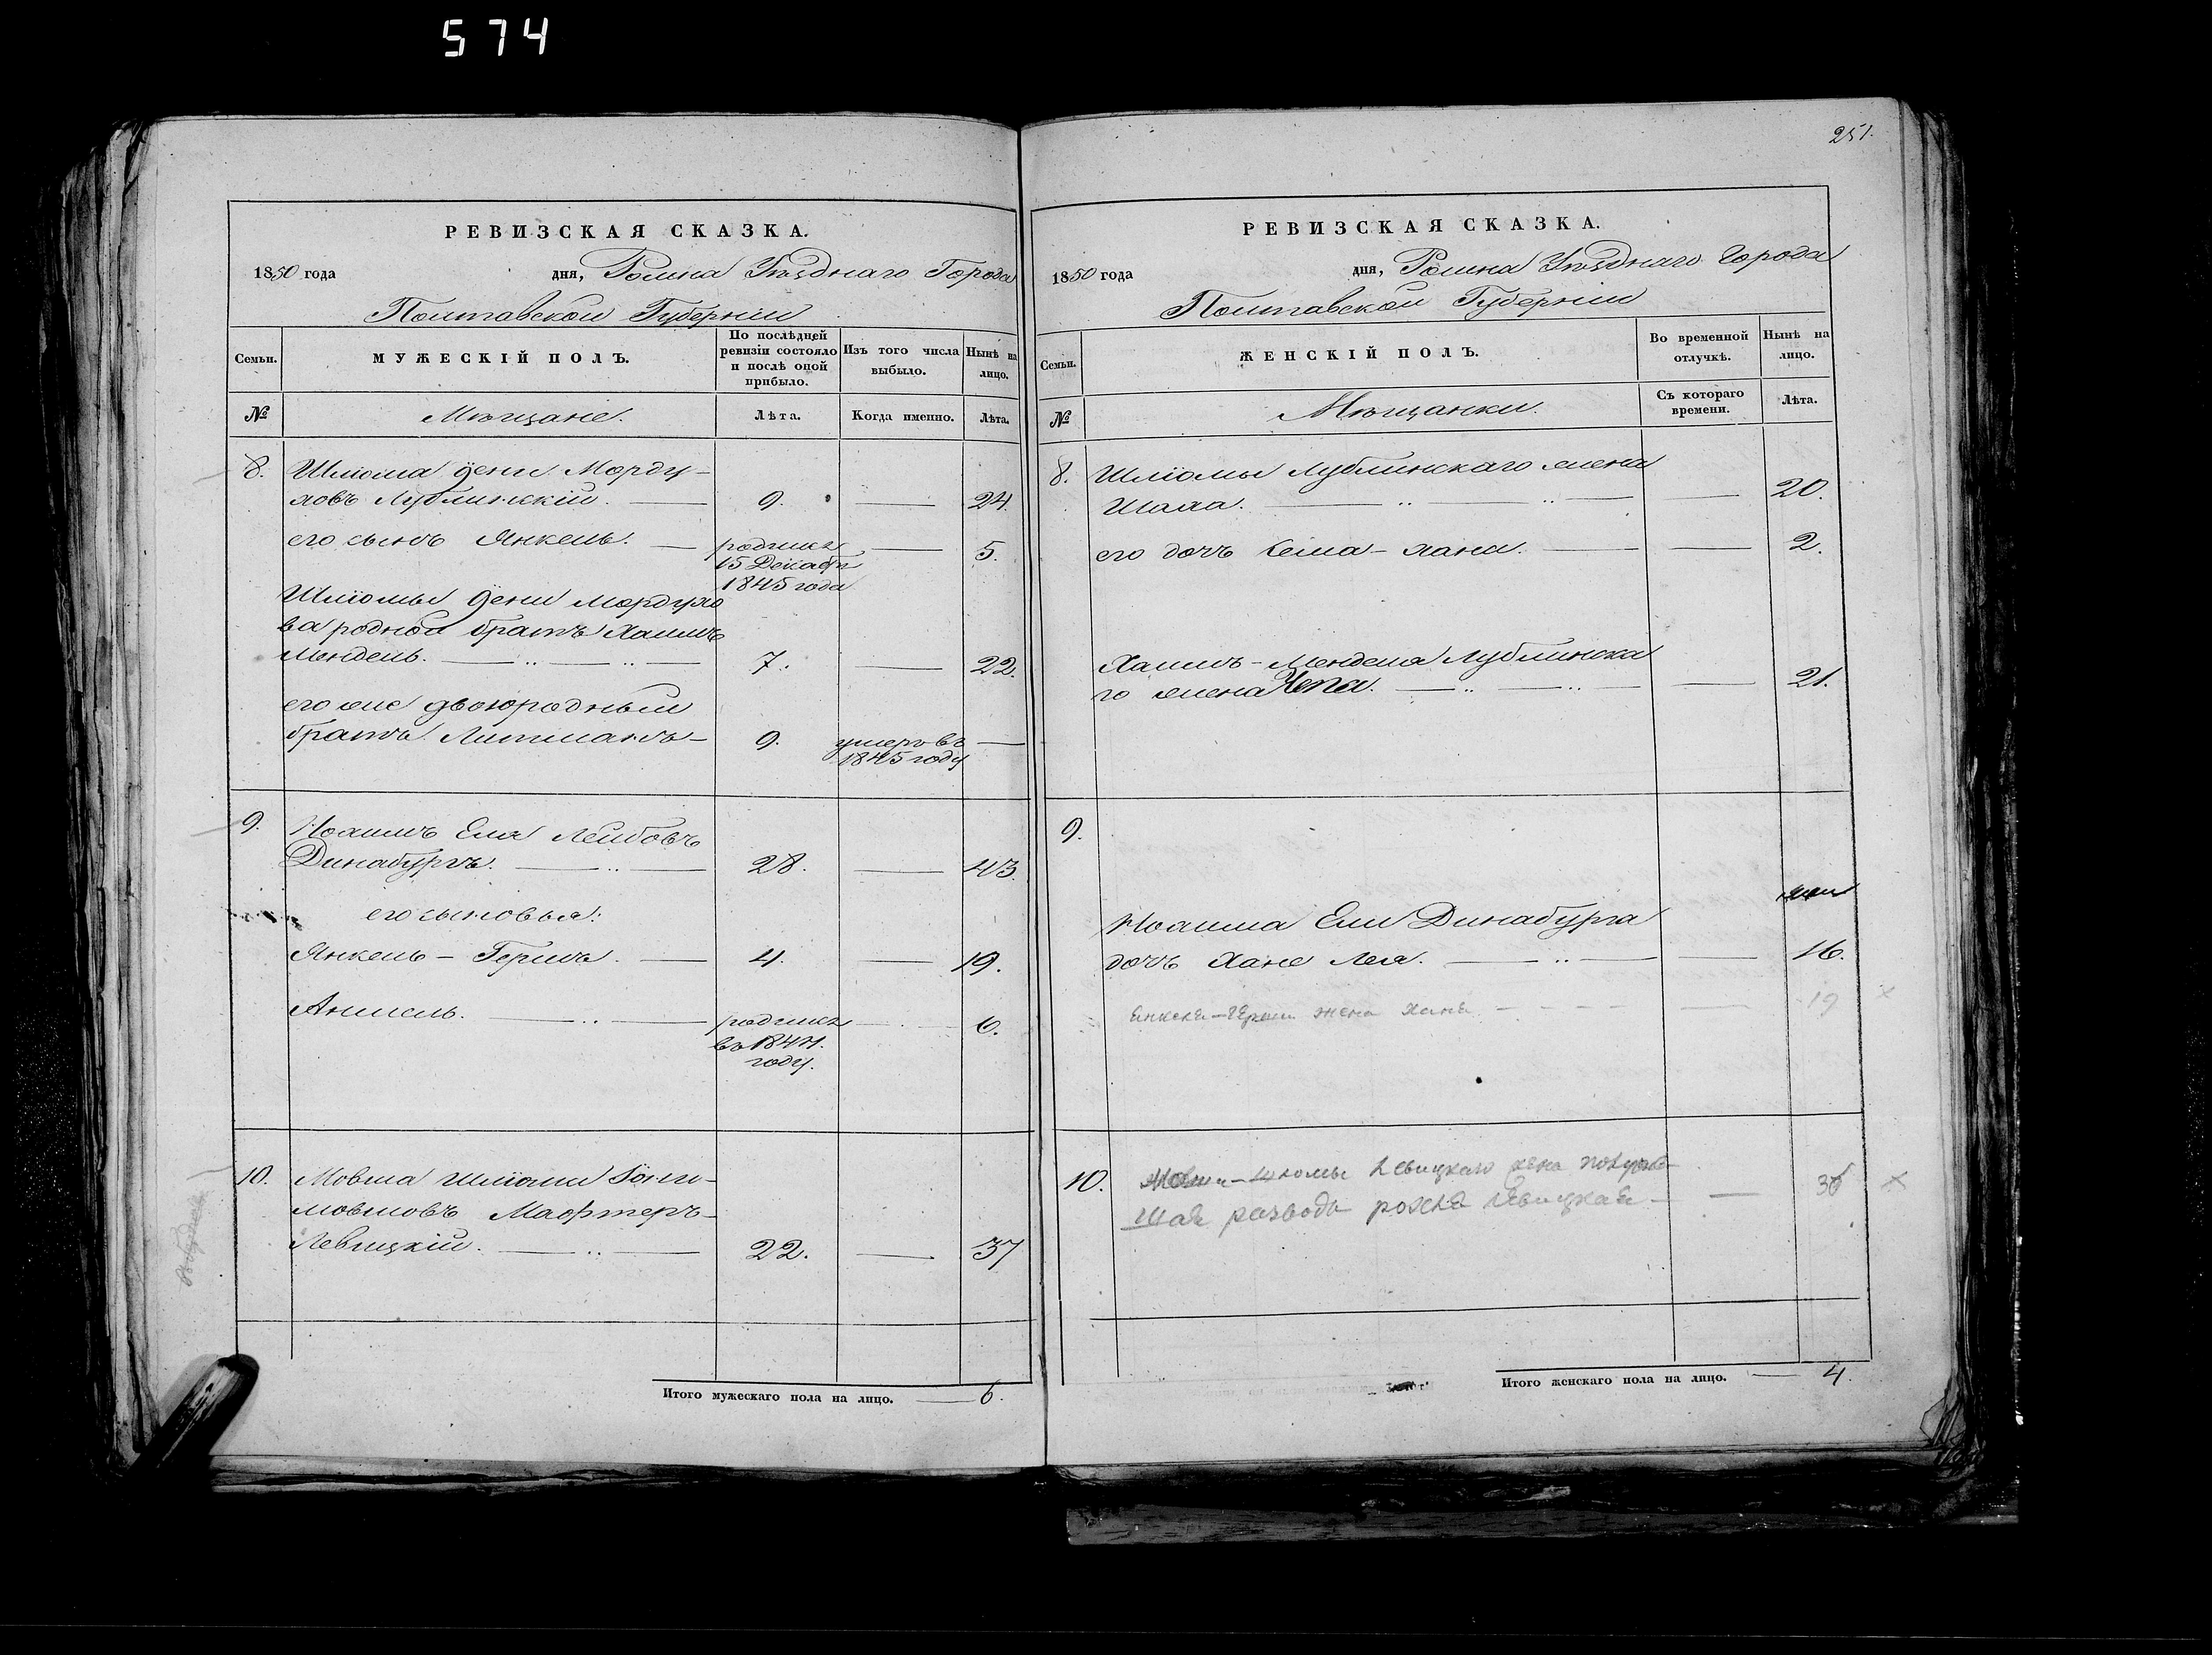 574
РЕВИЗСКАЯ СКАЗКА.
1850 года дня, Ромна Уѣзднаго Города
Полтавской Губерніи
Семьи.
МУЖЕСКІЙ ПОЛЪ.
По послѣдней ревизіи состояло и послѣ оной прибыло.
Изъ того числа выбыло.
Нынѣ на лицо.
№
Мѣщане.
Лѣта.
Когда именно.
Лѣта.
8. Шліома Морду-
ховъ Лублинскій. 9. 24.
его сынъ Янкель. родился 5.
15 Декабр
1845 года
Шліомы Мордухо
ва родной братъ Хаимъ
Мендель. 7. 22.
его же двоюродный
братъ Литманъ 9. умеръ въ
1845 году
9. Іоаимъ Еля Лейбовъ
Динабургъ. 28. 43.
его сыновья:
Янкель-Гершъ. 4. 19.
Аншель. родился 6.
въ 1844.
году.
10. Мовша Шліома
Левицкій. 22. 37
Итого мужескаго пола на лицо. 6.
251.
РЕВИЗСКАЯ СКАЗКА.
1850 года дня, Ромна Уѣзднаго Города
Полтавской Губерніи
Семьи.
ЖЕНСКІЙ ПОЛЪ.
Во временной отлучкѣ.
Нынѣ на лицо.
№
Мѣщанки.
Съ котораго времени.
Лѣта.
8. Шліомы Лублинскаго жена
20.
его дочь Хана. 2.
Хаимъ-Менделя Лублинска
го жена 21.
9.
Іоаима Ели Динабурга
дочь Хане Лея. 16.
жена Хана 19
10. Шломы Левицкаго жена получив-
шая разводъ Левицкая 36
Итого женскаго пола на лицо. 4.